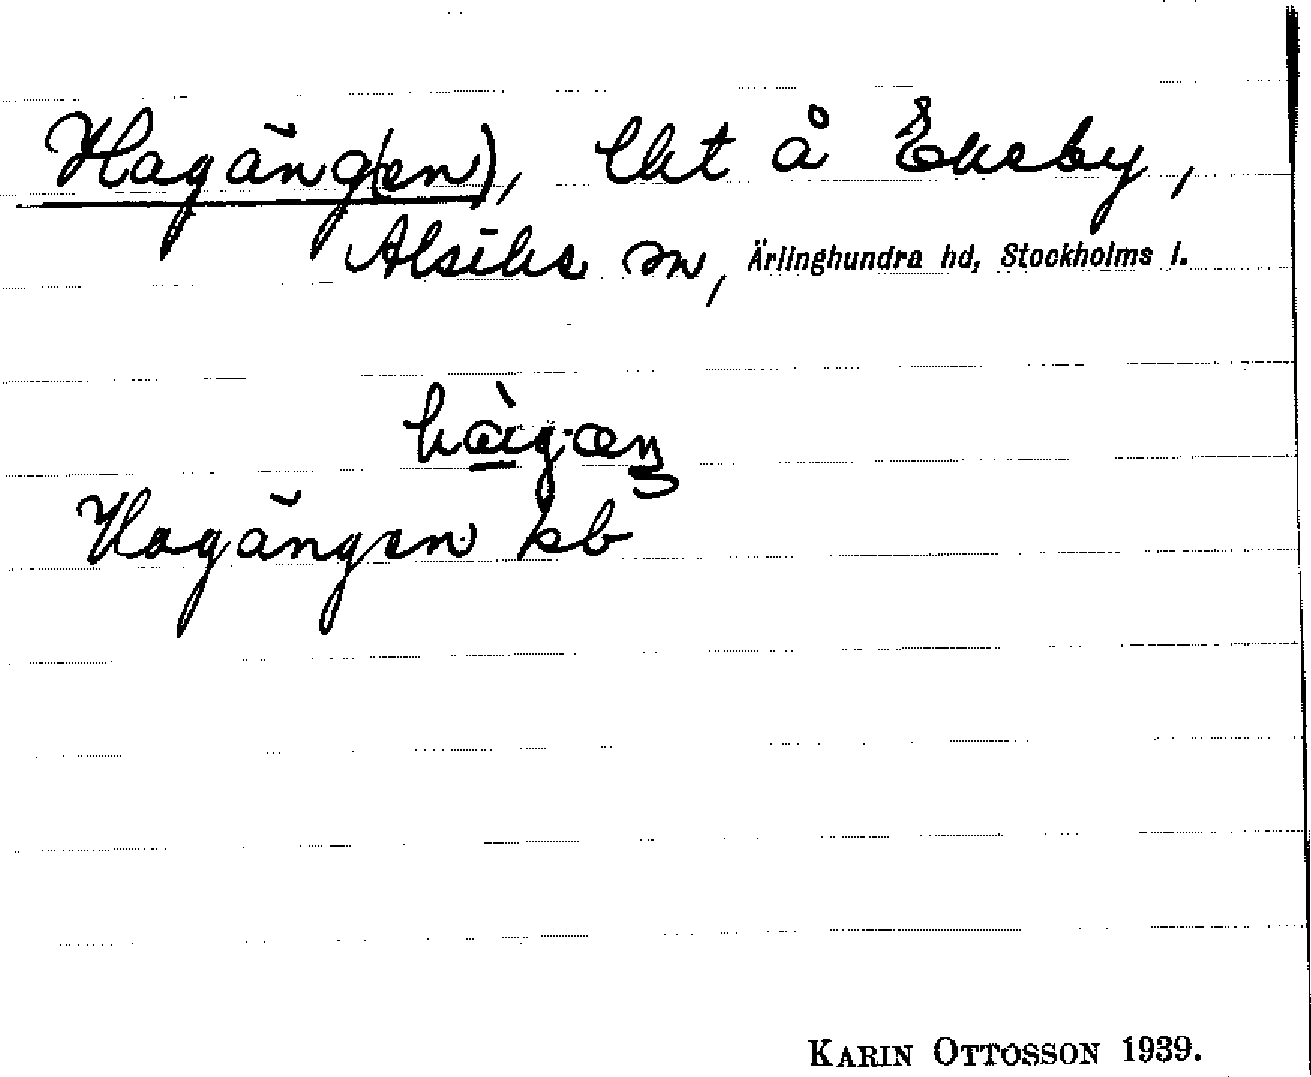 Hagäng(en), lkt å Ekeby,
Alsike sn, Ärlinghundra hd, Stockholms l.
Hagängen kb
KARIN OTTOSSON 1939.